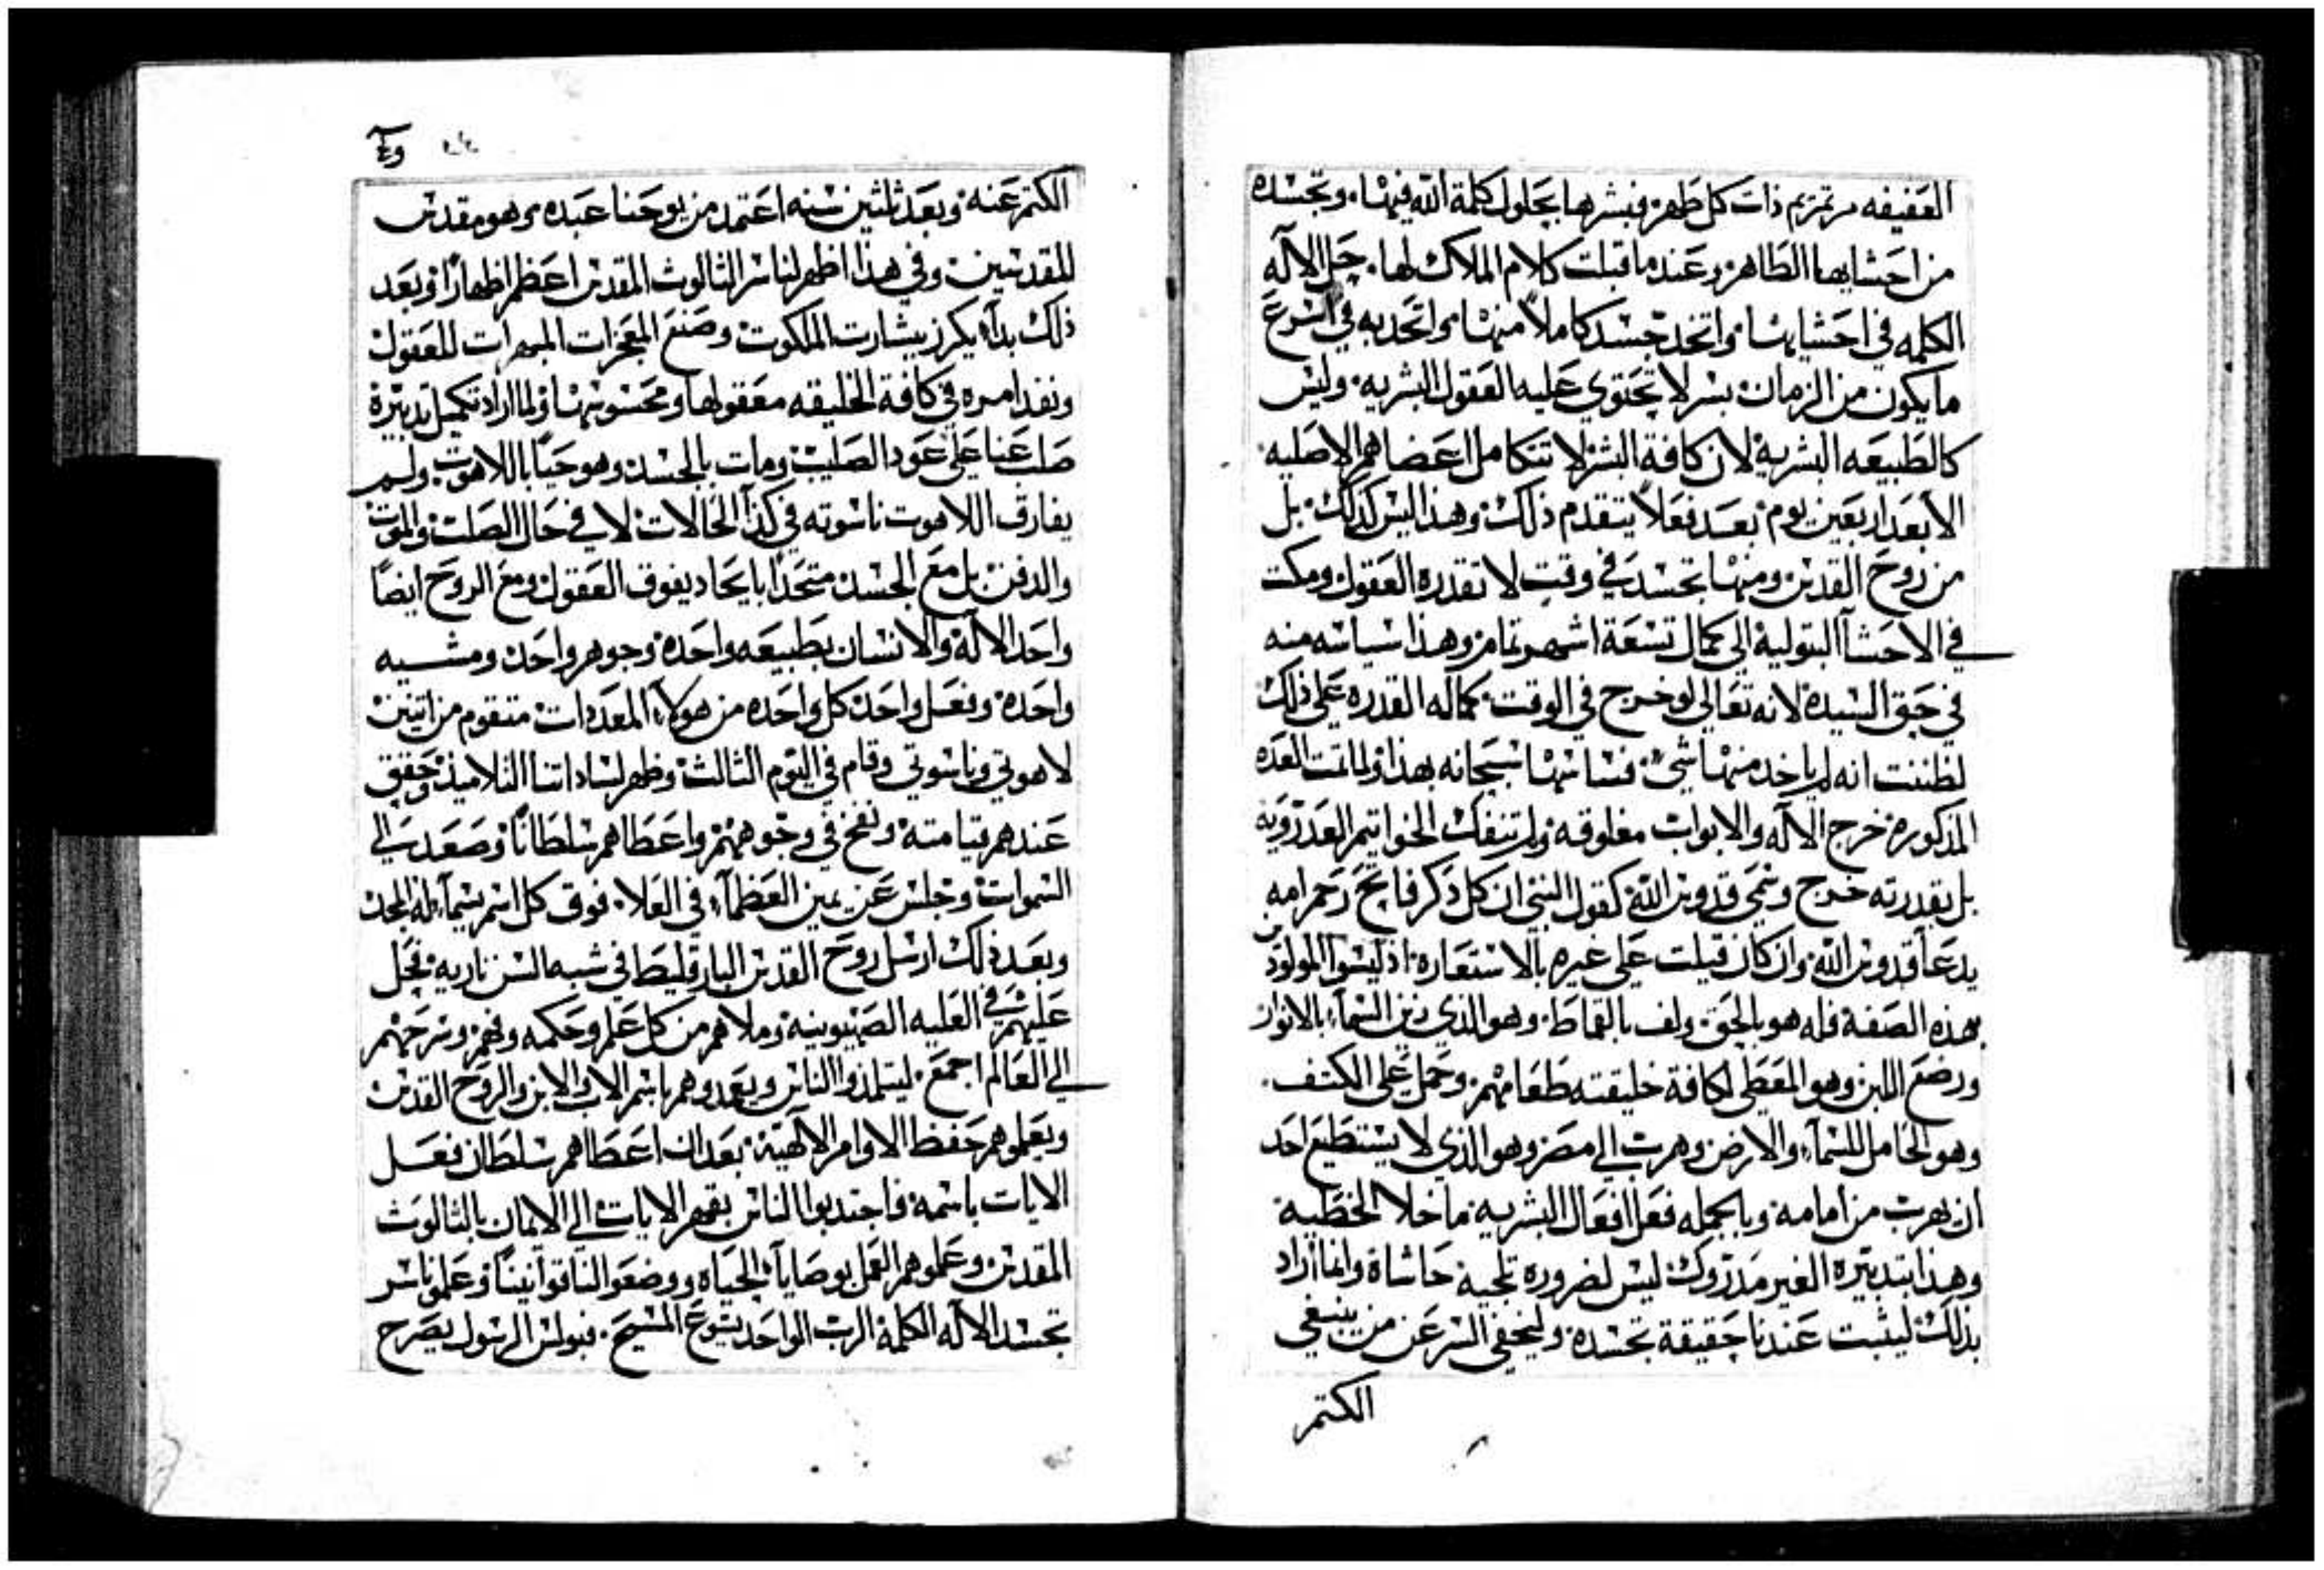 العفيفه مرتمريم ذات كل طهر فبشرها بحلول كلمة الله فيها. وتجسده
من احشايها الطاهره وعندما قبلت كلام الملاك لها. حل الاله
الكلمه في احشايها واتخد جسد كاملاً منها واتحد به في اسرع
ما يكون من الزمان بسر لا تحتوي عليه العقول البشريه وليس
كالطبيعه البشرية لان كافة البشر لا تتكامل اعضاهم الاصليه
الا بعد اربعين يوم بعد فعلاً يتقدم ذلك وهذا ليس كذلك بل
من روح القدس ومنها تجسد في وقت لا تقدره العقول ومكت
في الاحشآ البتولية الي كمال تسعة اشهر تمام وهذا سياسه منه
في حق السيدة لانه تعالي لو خرج في الوقت كماله القدره علي ذلك
لظننت انه لم ياخد منها شي فساسها سبحانه بهذا ولما تمت العده
المذكوره خرج الاله والابواب مغلوقه ولم تنفك الخواتيم العدرويه
بل بقدرته خرج وسمي قدوس الله كقول النبي ان كل ذكر فاتح رحم امه
يدعا قدوس الله وان كان قيلت علي غيره بالاستعاره اذ ليس المولود
بهذه الصفة فله هو بالحق ولف بالقماط وهو الذي زين السمآء بالانوار
ورضع اللبن وهو المعطي لكافة خليقته طعامهم وحمل علي الكتف
وهو الحامل للسمآء والارض وهرب الي مصر وهو الذي لا يستطيع احد
ان يهرب من امامه وبالجمله فعل افعال البشريه ما خلا الخطية
وهذا بتدبيره الغير مدروك ليس لضروره تلجيه حاشاه وانما اراد
بذلك ليثبت عندنا حقيقة تجسده وليخفي السر عن من ينبغي
الكتم
الكتم عنه وبعد ثلثين سنه اعتمد من يوحنا عبده وهو مقدس
للقديسين وفي هذا اظهر لنا سر الثالوث المقدس اعظم اظهاراً وبعد
ذلك بدآء يكرز ببشارت الملكوت وصنع المعجزات المبهرات للعقول
ونفد امره في كافة الخليقه معقولها ومحسوسها ولما اراد تكميل تدبيره
صلب عنا علي عود الصليب ومات بالجسد وهو حياً باللاهوت ولم
يفارق اللاهوت ناسوته في كذا الحالات لا في حال الصلب والموت
والدفن بل مع الجسد متحداً باتحاد يفوق العقول ومع الروح ايضاً
واحد الاله والانسان بطبيعه واحدة وجوهر واحد ومشيه
واحدة وفعل واحد كل واحده من هولاء المعدات متقوم من اتنين
لاهوتي وناسوتي وقام في اليوم الثالث وظهر لساداتنا التلاميذ وحقق
عندهم قيامته ونفخ في وجوههم واعطاهم سلطاناً وصعد الي
السموات وجلس عن يمين العظمآء في العلا فوق كل اسم يسمآ له المجد
وبعد ذلك ارسل روح القدس البارقليط في شبه السن ناريه فحل
عليهم في العليه الصهيونية وملاهم من كل علم وحكمه وفهم وسرحهم
الي العالم اجمع ليتلمذوا الناس ويعمدوهم باسم الاب والابن والروح القدس
ويعلموهم حفظ الاوامر الالهية بعد ان اعطاهم سلطان فعل
الايات باسمه فاجتدبوا الناس بقهر الايات الي الايمان بالثالوث
المقدس وعلموهم العمل بوصايآء الحياه ووضعوا لنا قوانيناً وعلمونا سر
تجسد الاله الكلمة الرب الواحد يسوع المسيح. فبولس الرسول يصرح